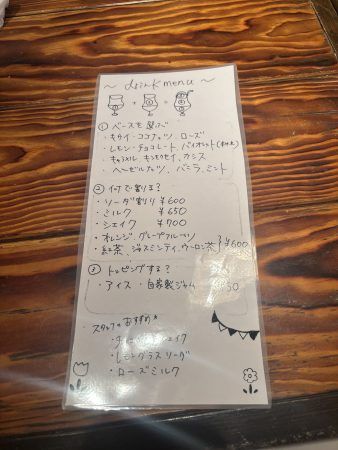 ～ drink menu ～
① ベースを選ぶ
・キウイ・ココナッツ、ローズ
・レモン・チョコレート、バイオレット
・キャラメル、キンモクセイ、カシス
・ヘーゼルナッツ、バニラ、ミント
② で割る?
・ソーダ割り ¥600
・ミルク ¥650
・シェイク ¥700
・オレンジ、グレープフルーツ
・紅茶、ジャスミンティ、ウーロン茶 } ¥600
③ トッピングする?
・アイス ・自家製ジャム 50
スタッフのおすすめ★
シェイク
・レモングラスソーダ
・ローズミルク